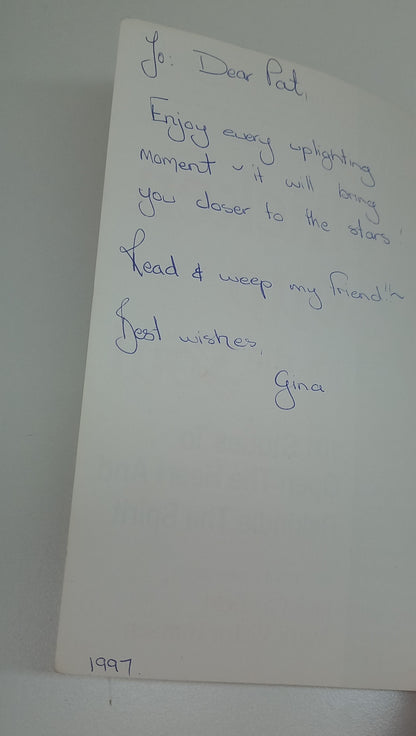 To: Dear Pat,
Enjoy every uplighting
moment ~ it will bring
you closer to the stars!
Read & weep my friend!!~
Best wishes,
Gina
1997.